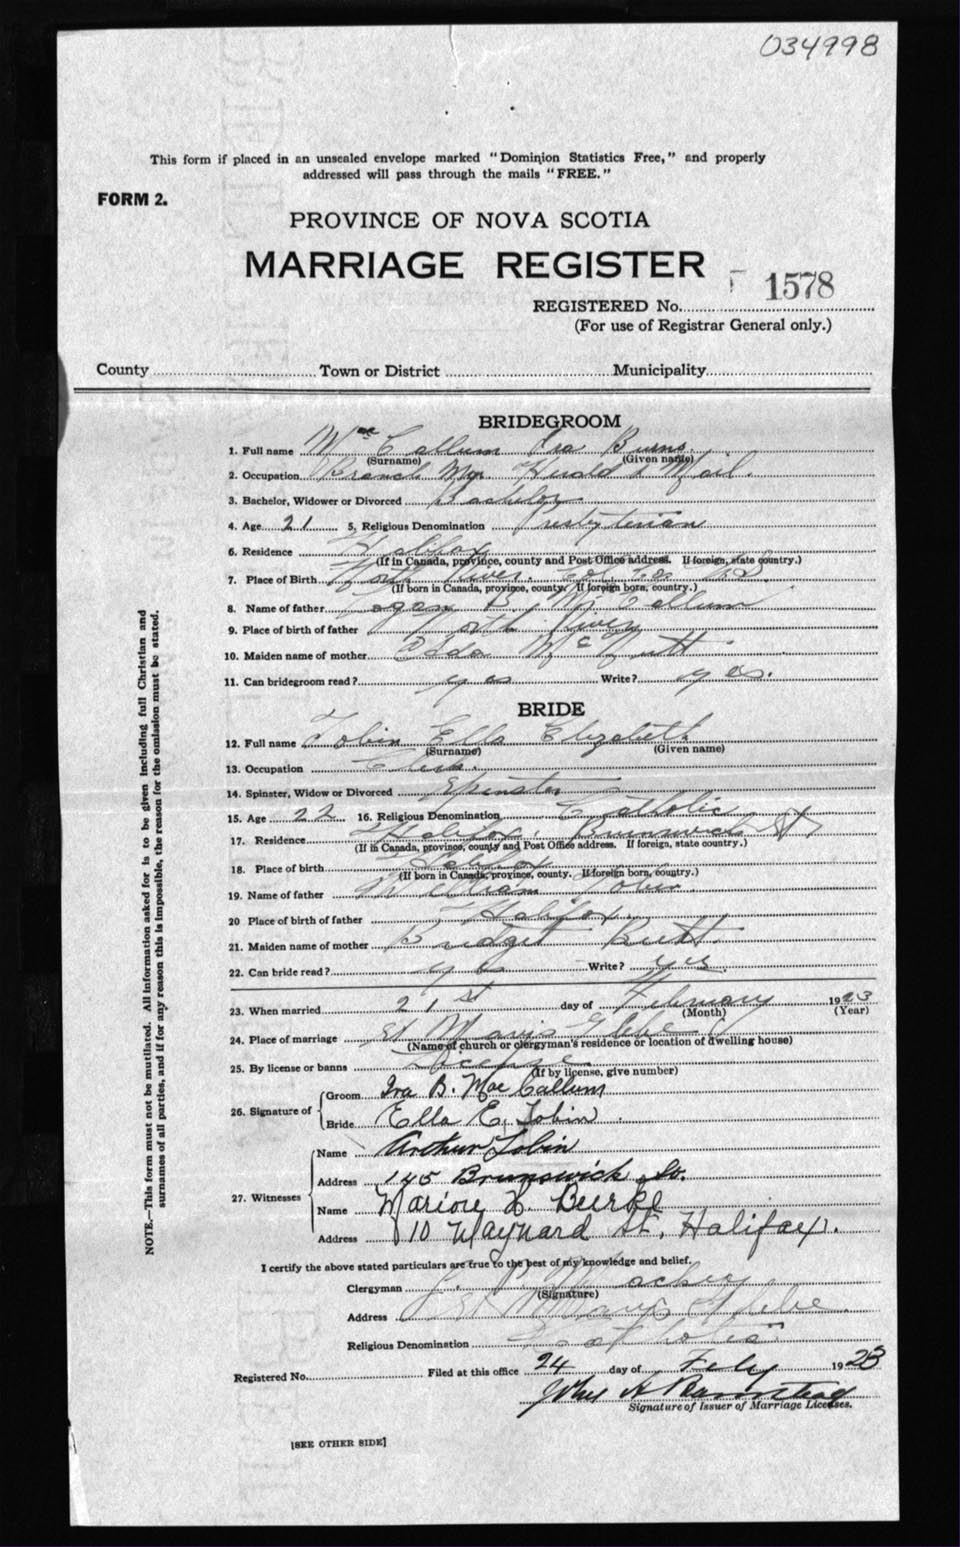 034998
This form if placed in an unsealed envelope marked "Dominion Statistics Free," and properly
addressed will pass through the mails "FREE."
FORM 2.
PROVINCE OF NOVA SCOTIA
MARRIAGE REGISTER
REGISTERED No. 1578
(For use of Registrar General only.)
County Town or District Municipality
BRIDEGROOM
1. Full name MacCallum Ira Burns
(Surname) (Given name)
2. Occupation Branch Mgr Herald & Mail.
3. Bachelor, Widower or Divorced Bachelor
4. Age 21 5. Religious Denomination Presbyterian
6. Residence Halifax
(If in Canada, province, county and Post Office address. If foreign, state country.)
7. Place of Birth North River Col Co N.S.
(If born in Canada, province, county. If foreign born, country.)
8. Name of father Logan B. McCallum
9. Place of birth of father North River
10. Maiden name of mother Adda McNutt
11. Can bridegroom read? yes Write? yes.
BRIDE
12. Full name Tobin Ella Elizabeth
(Surname) (Given name)
13. Occupation Clerk.
14. Spinster, Widow or Divorced Spinster
15. Age 22 16. Religious Denomination Catholic
17. Residence Halifax. Brunswick St
(If in Canada, province, county and Post Office address. If foreign, state country.)
18. Place of birth Halifax
(If born in Canada, province, county. If foreign born, country.)
19. Name of father William Tobin
20 Place of birth of father Halifax.
21. Maiden name of mother Bridget Butt.
22. Can bride read? yes Write? yes.
23. When married 21st day of February 1923
(Month) (Year)
24. Place of marriage St Marys Glebe
(Name of church or clergyman's residence or location of dwelling house)
25. By license or banns License
(If by license, give number)
26. Signature of Groom Ira B. MacCallum
Bride Ella E. Tobin
27. Witnesses Name Arthur Tobin
Address 145 Brunswick St.
Name Marion H. Burke
Address 10 Maynard St. Halifax.
I certify the above stated particulars are true to the best of my knowledge and belief.
Clergyman Mackey
(Signature)
Address St Marys Glebe
Religious Denomination Catholic
Registered No. Filed at this office 24 day of Feby 1923
Signature of Issuer of Marriage Licenses.
[SEE OTHER SIDE]
NOTE.—This form must not be mutilated. All information asked for is to be given including full Christian and
surnames of all parties, and if for any reason this is impossible, the reason for the omission must be stated.